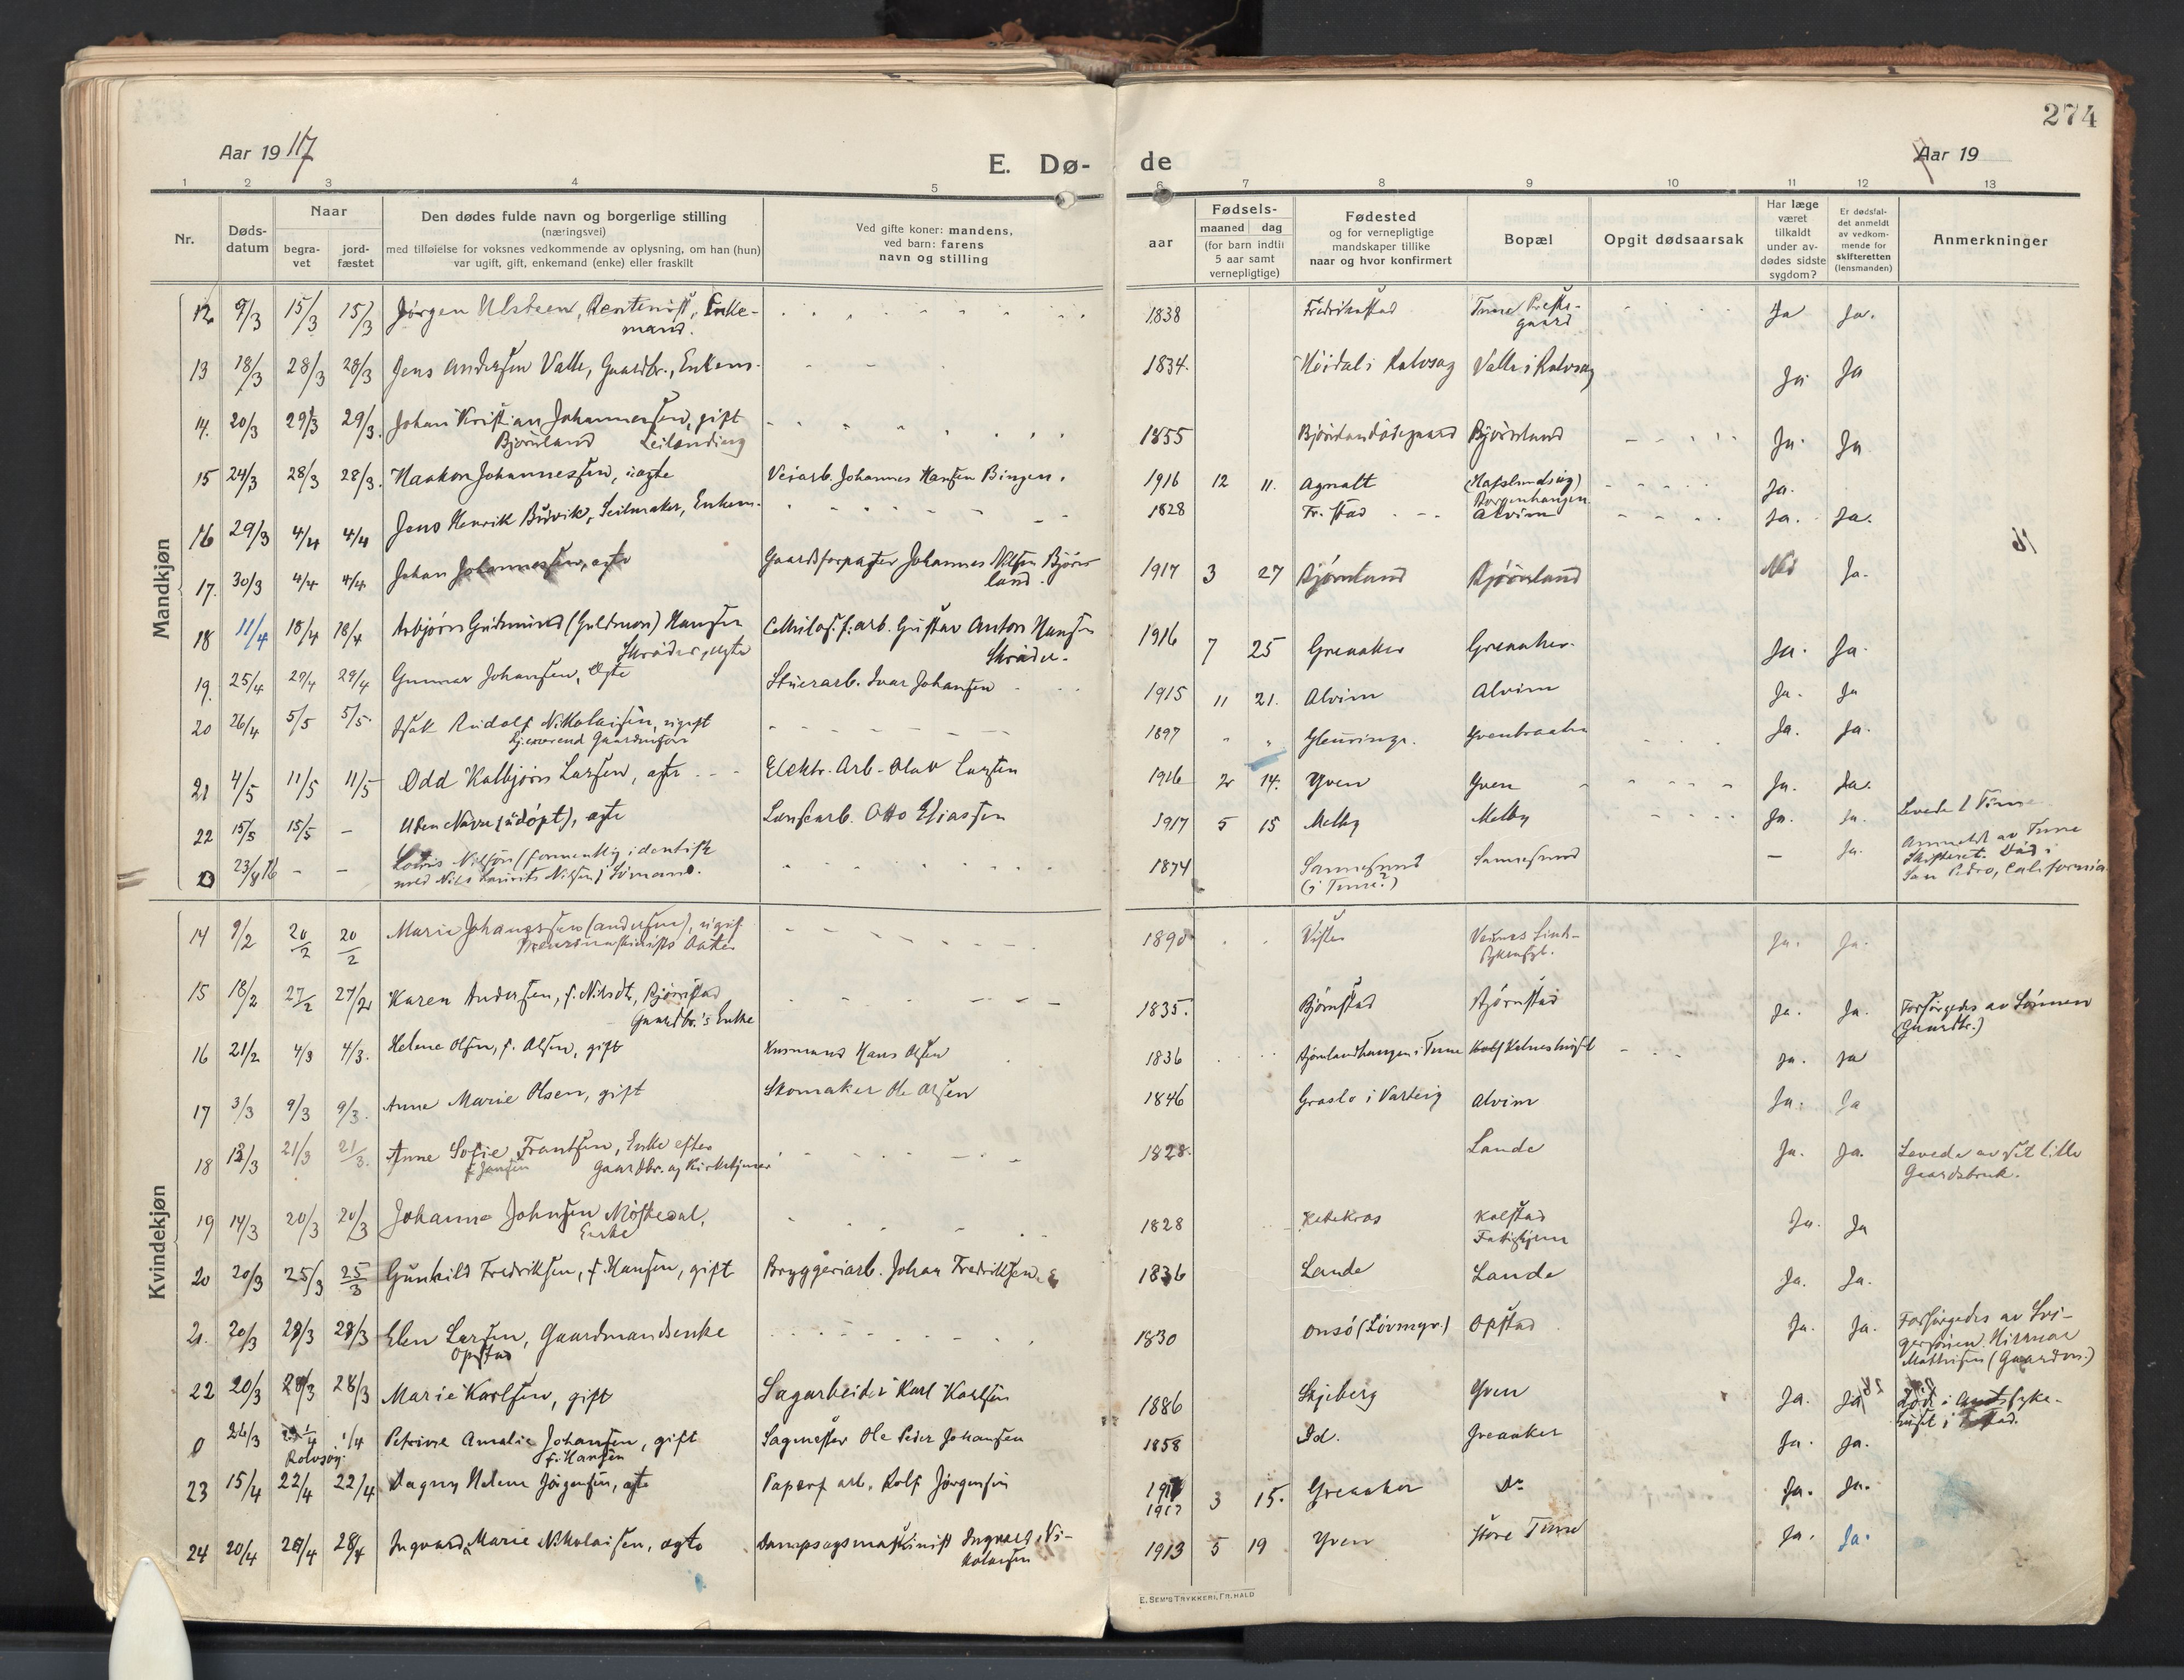 274
Aar 1917
E. Dø-
de
Aar 19
1 2 3 4 5 6 7 8 9 10 11 12 13
Nr.
Døds-
datum
Naar
begra-
vet
jord-
fæstet
Den dødes fulde navn og borgerlige stilling
(næringsvei)
med tilføielse for voksnes vedkommende av oplysning, om han (hun)
var ugift, gift, enkemand (enke) eller fraskilt
Ved gifte koner: mandens,
ved barn: farens
navn og stilling
aar
Fødsels-
maaned dag
(for barn indtil
5 aar samt
vernepligtige)
Fødested
og for vernepligtige
mandskaper tillike
naar og hvor konfirmert
Bopæl
Opgit dødsaarsak
Har læge
været
tilkaldt
under av-
dødes sidste
sygdom?
Er dødsfal-
det anmeldt
av vedkom-
mende for
skifteretten
(lensmanden)
Anmerkninger
Mandkjøn
12 9/3 15/3 15/3 Jørgen Ulsteen, Rentenist, Enke-
mand.
1838 Fredrikstad Tune Preste-
gaard Ja Ja.
13 18/3 28/3 28/3 Jens Andersen Valle, Gaardbr., Enkem. 1834. Høidal i Rolvsøy Valle i Rolvsøy Ja Ja
14. 20/3 29/3 29/3. Johan Kristian Johannessen, gift
Bjørnland Leilænding
1855 Bjørnland Ja. Ja
15 24/3 28/3 28/3. Haakon Johannessen, uægte Veiarb. Johannes Hansen Bingen. 1916 12 11. Agnalt (Hafslundsøy)
Borgenhaugen Ja.
16 29/3 4/4 4/4 Jens Henrik Buvik, Seilmaker, Enkem. 1828 Fr.stad Alvim Ja. Ja.
17. 30/3 4/4 4/4 Johan Johannessen, ægte Gaardsforpagter Johannes Nilsen Bjørn-
land. 1917 3 27 Bjørnland Bjørnland Nei Ja.
18 11/4 18/4 18/4 Asbjørn Gudmund (Guldmon) Hansen
Skrøder, ægte Cellulosef.arb. Gustav Anton Hansen
Skrøder. 1916 7 25 Greaaker Greaaker. Ja. Ja.
19. 25/4 29/4 29/4 Gunnar Johansen, ægte Stuerarb. Ivar Johansen 1915 11 21. Alvim Alvim Ja. Ja
20 26/4 5/5 5/5. Isak Rudolf Nikolaisen, ugift
Hjemværend Gaardmandssøn
1897 Yvenbraaten Ja. Ja.
21 4/5 11/5 11/5 Odd Kolbjørn Larsen, ægte Elektr. Arb. Olav Larsen 1916 2 14. Yven Yven Ja. Ja.
22 15/5 15/5 - Uten Navn (udøpt), ægte Lensearb. Otto Eliassen 1917 5 15 Melby Melby Ja. Ja. Levede 1 Time
0 23/8 16 - - Louis Nilsen (formentlig identisk
med Nils Laurits Nilsen) Sømand. 1874 Sannesund
(i Tune?) Sannesund - Ja. Anmeldt av Tune
Skifteret. Død i
San Pedro, California
Kvindekjøn
14 9/2 20/2 20/2 Marie Johansen (Andersen), ugift
1890 Visten Ja. Ja.
15 18/2 27/2 27/2 Karen Andersen, f. Nilsdt., Bjørnstad
Gaardbr.'s Enke
1835. Bjørnstad Bjørnstad Ja. Ja. Forsørgedes av Sønnen
(Gaardbr.)
16 21/2 4/3 4/3. Helene Olsen, f. Olsen, gift Husmand Hans Olsen 1836 Bjørnlandhaugen i Tune Kalneshuset Ja. Ja
17 3/3 9/3 9/3. Anne Marie Olsen, gift Skomaker Ole Olsen 1846 Graslo i Varteig Alvim Ja. Ja
18 12/3 21/3 21/3. Anne Sofie Frantsen, Enke efter
f. Jensen Gaardbr. og Kirketjener
1828. Lande Ja. Ja. Levede av sit lille
Gaardsbruk.
19 14/3 20/3 20/3 Johanne Johnsen Møstedal,
Enke
1828 Kolstad
Fattighjem Ja. Ja
20 20/3 25/3 25/3 Gunhild Fredriksen, f. Hansen, gift Bryggeriarb. Johan Fredriksen 1836 Lande Lande Ja. Ja.
21. 20/3 28/3 28/3 Elen Larsen, Gaardmandsenke
Opstad
1830 Onsø (Løvmyr.) Opstad Ja. Ja. Forsørgedes av Svi-
gersønnen Hilmar
Mathisen (Gaardm.)
22 20/3 28/3 28/3 Marie Karlsen, gift Sagarbeider Karl Karlsen 1886 Skjeberg Yven Ja. Ja Død i Amtssyke-
huset i
0 26/3 1/4 1/4 Petrine Amalie Johansen, gift
Rolvsøy. f. Hansen
Sagmester Ole Peder Johansen 1858 Id. Greaaker Ja. Ja.
23 15/4 22/4 22/4 Dagny Helene Jørgensen, ægte Papirf. arb. Rolf Jørgensen 1917 3 15. Greaaker Do. Ja. Ja.
24 20/4 28/4 28/4 Ingvarda Marie Nikolaisen, ægte Dampsagsmaskinist Ingvald Ni-
kolaisen 1913 5 19 Yven Store Tune Ja. Ja.
E. SEM'S TRYKKERI, FR.HALD